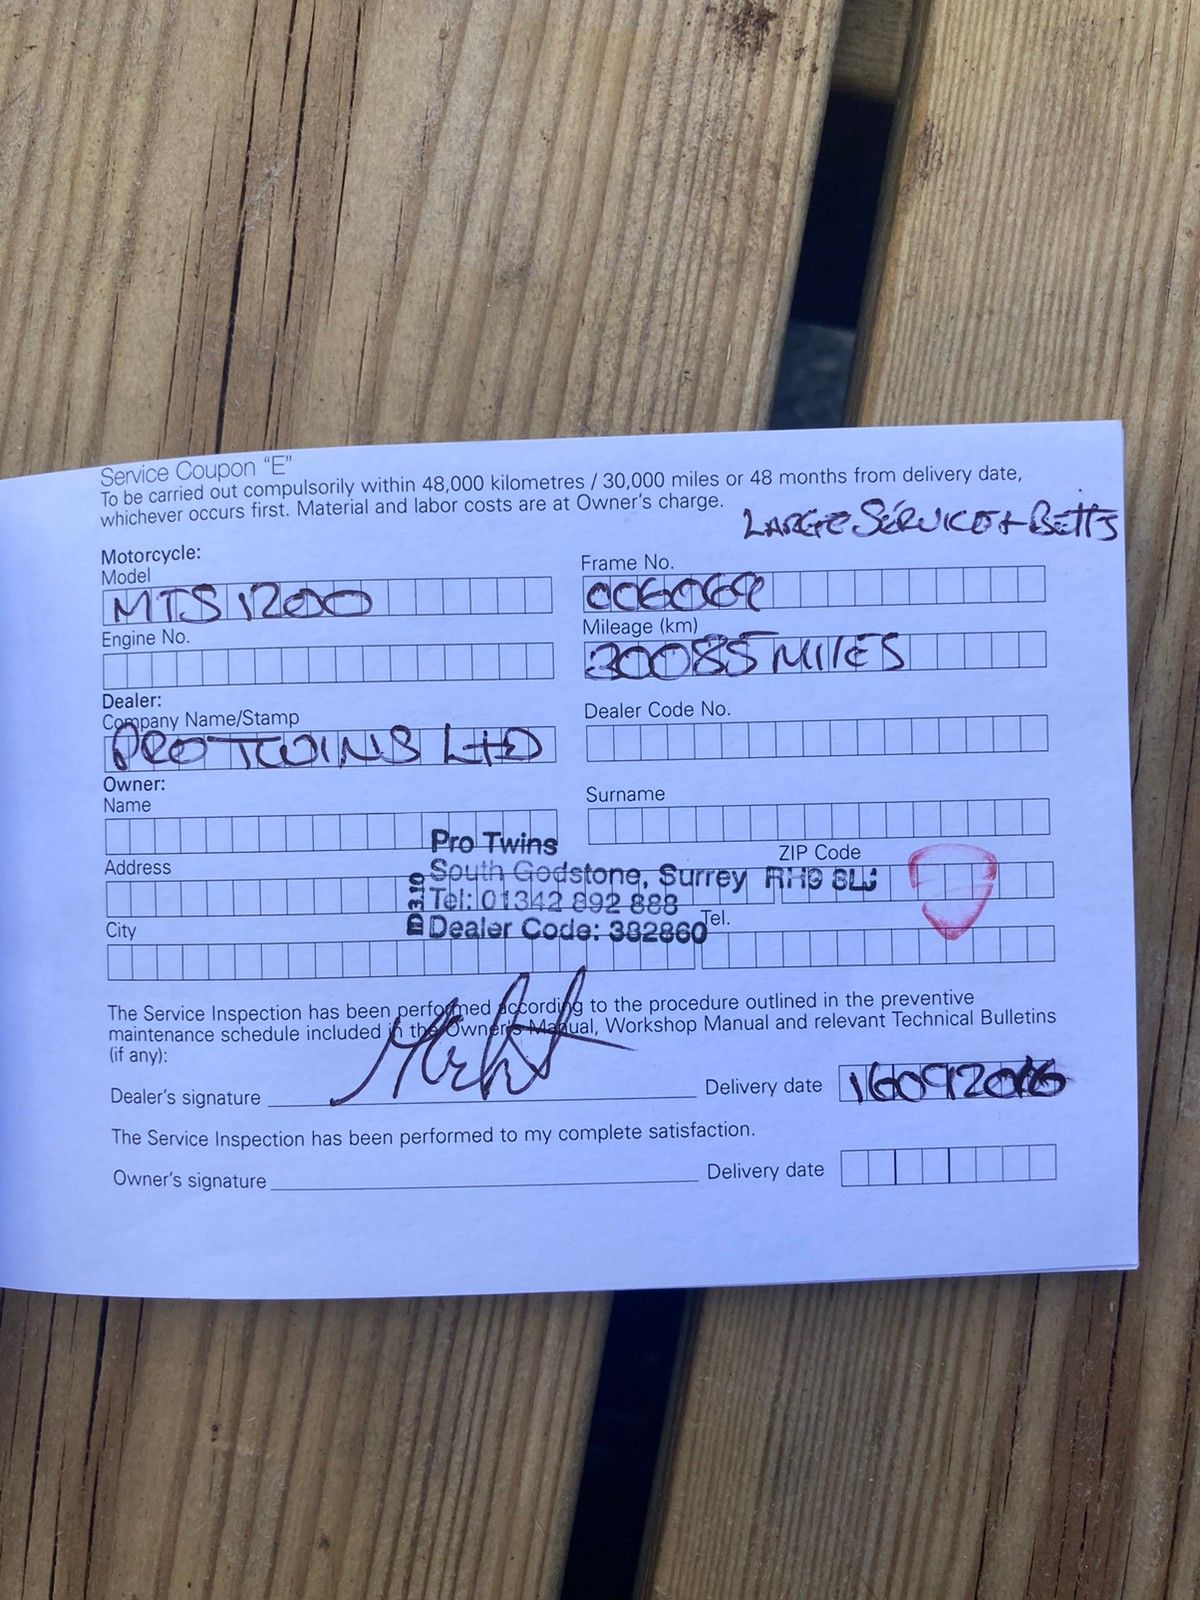 Service Coupon "E"
To be carried out compulsorily within 48,000 kilometres / 30,000 miles or 48 months from delivery date,
whichever occurs first. Material and labor costs are at Owner's charge.
LARGE SERVICE + BELTS
Motorcycle:
Model
MTS 1200
Frame No.
006069
Engine No.
Mileage (km)
30085 MILES
Dealer:
Company Name/Stamp
PRO TWINS LTD
Dealer Code No.
Owner:
Name
Surname
Pro Twins
Address
ZIP Code
South Godstone, Surrey RH9 8LJ
Tel: 01342 892 888
Dealer Code: 382860
City
Tel.
The Service Inspection has been performed according to the procedure outlined in the preventive
maintenance schedule included in the Owner's Manual, Workshop Manual and relevant Technical Bulletins
(if any):
Dealer's signature
Delivery date 16092016
The Service Inspection has been performed to my complete satisfaction.
Owner's signature
Delivery date